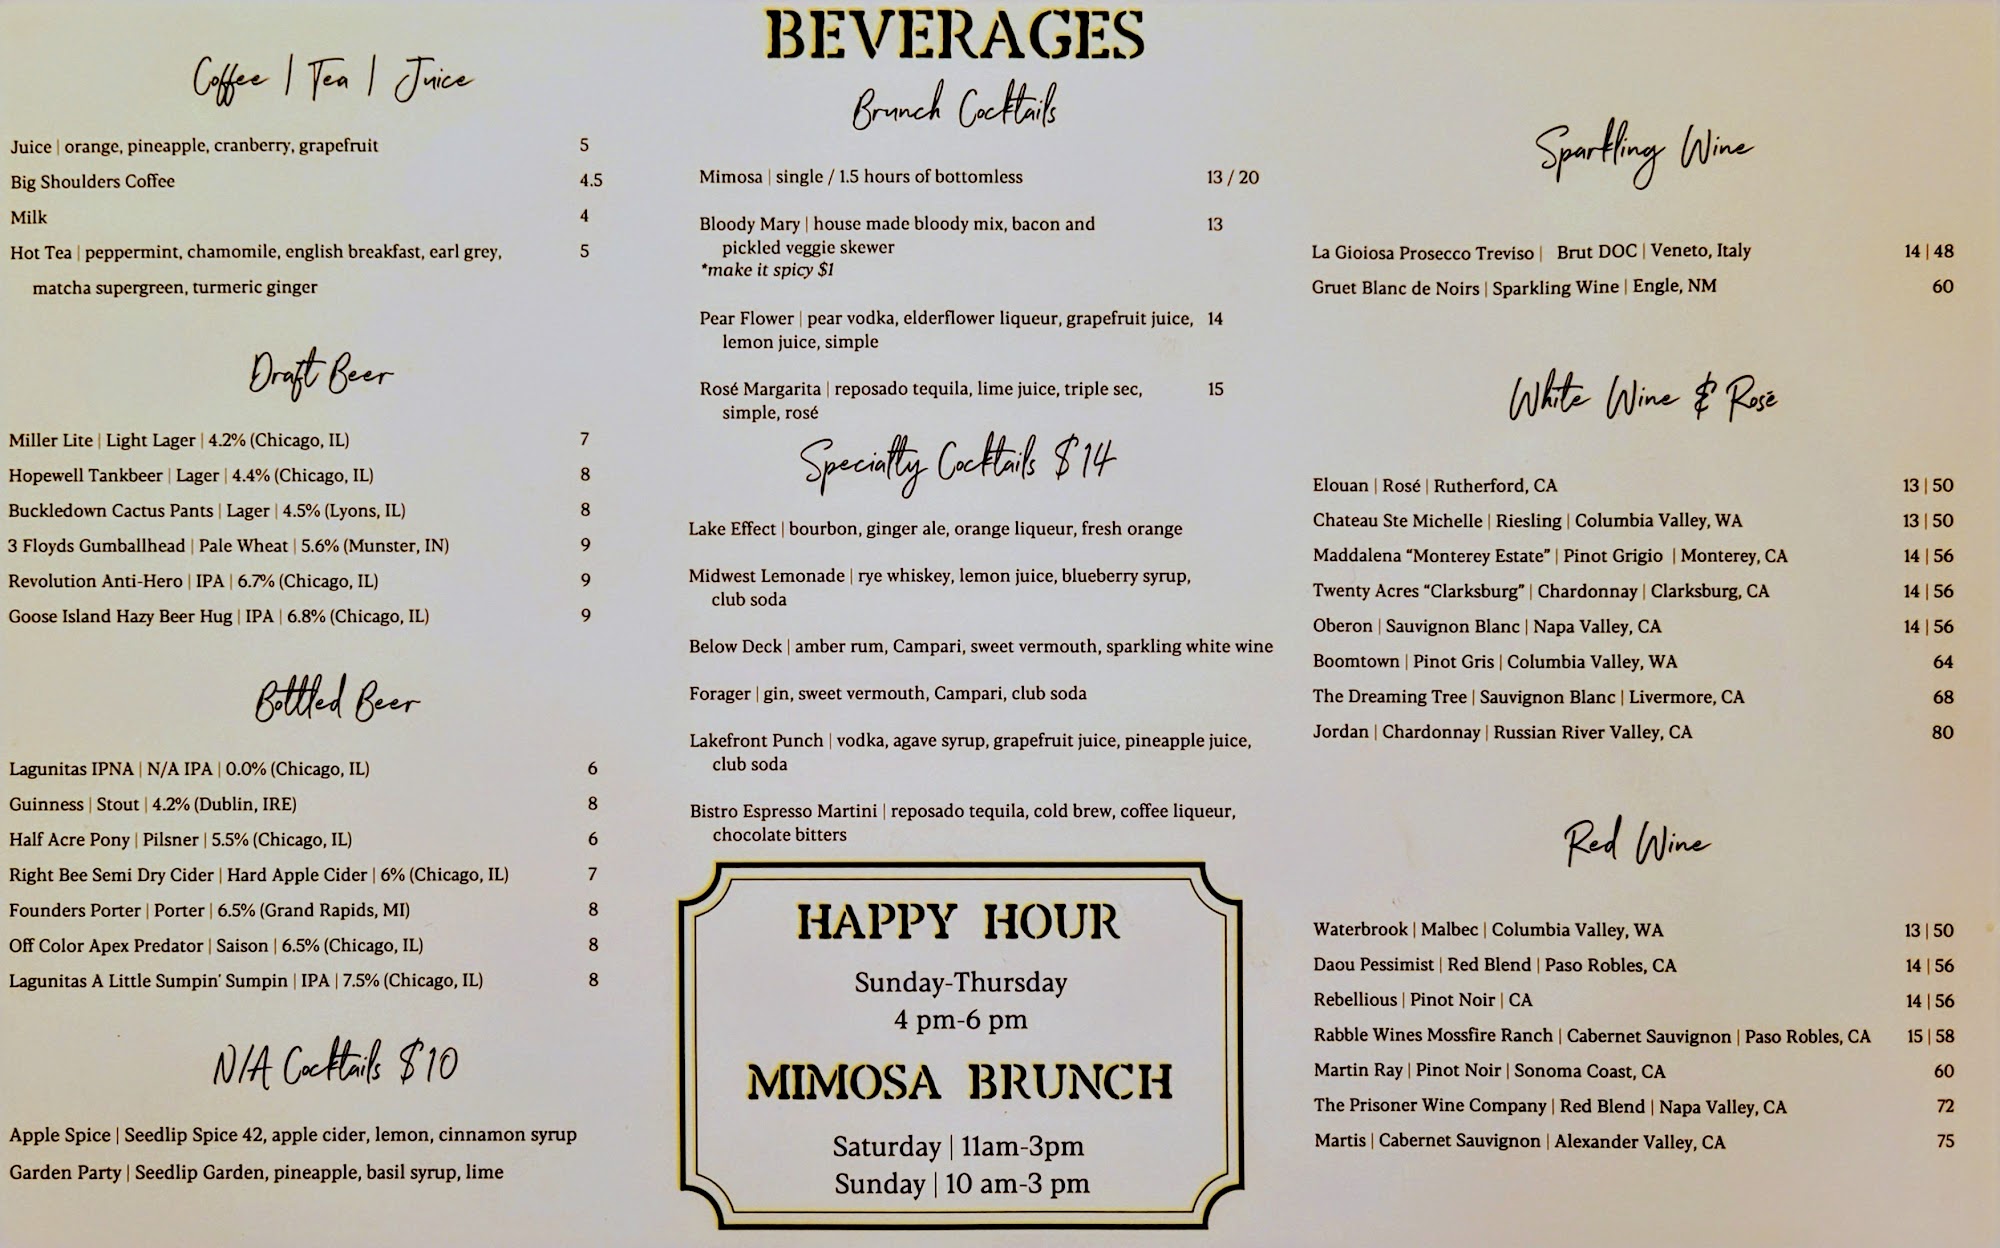 BEVERAGES
Coffee | Tea | Juice
Juice | orange, pineapple, cranberry, grapefruit 5
Big Shoulders Coffee 4.5
Milk 4
Hot Tea | peppermint, chamomile, english breakfast, earl grey, 5
matcha supergreen, turmeric ginger
Draft Beer
Miller Lite | Light Lager | 4.2% (Chicago, IL) 7
Hopewell Tankbeer | Lager | 4.4% (Chicago, IL) 8
Buckledown Cactus Pants | Lager | 4.5% (Lyons, IL) 8
3 Floyds Gumballhead | Pale Wheat | 5.6% (Munster, IN) 9
Revolution Anti-Hero | IPA | 6.7% (Chicago, IL) 9
Goose Island Hazy Beer Hug | IPA | 6.8% (Chicago, IL) 9
Bottled Beer
Lagunitas IPNA | N/A IPA | 0.0% (Chicago, IL) 6
Guinness | Stout | 4.2% (Dublin, IRE) 8
Half Acre Pony | Pilsner | 5.5% (Chicago, IL) 6
Right Bee Semi Dry Cider | Hard Apple Cider | 6% (Chicago, IL) 7
Founders Porter | Porter | 6.5% (Grand Rapids, MI) 8
Off Color Apex Predator | Saison | 6.5% (Chicago, IL) 8
Lagunitas A Little Sumpin' Sumpin | IPA | 7.5% (Chicago, IL) 8
N/A Cocktails $10
Apple Spice | Seedlip Spice 42, apple cider, lemon, cinnamon syrup
Garden Party | Seedlip Garden, pineapple, basil syrup, lime
Brunch Cocktails
Mimosa | single / 1.5 hours of bottomless 13 / 20
Bloody Mary | house made bloody mix, bacon and 13
pickled veggie skewer
*make it spicy $1
Pear Flower | pear vodka, elderflower liqueur, grapefruit juice, 14
lemon juice, simple
Rosé Margarita | reposado tequila, lime juice, triple sec, 15
simple, rosé
Specialty Cocktails $14
Lake Effect | bourbon, ginger ale, orange liqueur, fresh orange
Midwest Lemonade | rye whiskey, lemon juice, blueberry syrup,
club soda
Below Deck | amber rum, Campari, sweet vermouth, sparkling white wine
Forager | gin, sweet vermouth, Campari, club soda
Lakefront Punch | vodka, agave syrup, grapefruit juice, pineapple juice,
club soda
Bistro Espresso Martini | reposado tequila, cold brew, coffee liqueur,
chocolate bitters
HAPPY HOUR
Sunday-Thursday
4 pm-6 pm
MIMOSA BRUNCH
Saturday | 11am-3pm
Sunday | 10 am-3 pm
Sparkling Wine
La Gioiosa Prosecco Treviso | Brut DOC | Veneto, Italy 14 | 48
Gruet Blanc de Noirs | Sparkling Wine | Engle, NM 60
White Wine & Rosé
Elouan | Rosé | Rutherford, CA 13 | 50
Chateau Ste Michelle | Riesling | Columbia Valley, WA 13 | 50
Maddalena “Monterey Estate” | Pinot Grigio | Monterey, CA 14 | 56
Twenty Acres “Clarksburg” | Chardonnay | Clarksburg, CA 14 | 56
Oberon | Sauvignon Blanc | Napa Valley, CA 14 | 56
Boomtown | Pinot Gris | Columbia Valley, WA 64
The Dreaming Tree | Sauvignon Blanc | Livermore, CA 68
Jordan | Chardonnay | Russian River Valley, CA 80
Red Wine
Waterbrook | Malbec | Columbia Valley, WA 13 | 50
Daou Pessimist | Red Blend | Paso Robles, CA 14 | 56
Rebellious | Pinot Noir | CA 14 | 56
Rabble Wines Mossfire Ranch | Cabernet Sauvignon | Paso Robles, CA 15 | 58
Martin Ray | Pinot Noir | Sonoma Coast, CA 60
The Prisoner Wine Company | Red Blend | Napa Valley, CA 72
Martis | Cabernet Sauvignon | Alexander Valley, CA 75